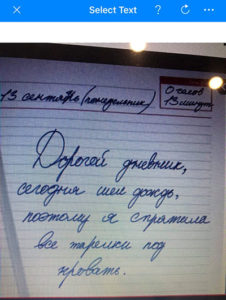 Select Text
13 сентябь (понидельник)
0 часов
13 минут
Дорогой дневник,
сегодня шел дождь,
поэтому я спратила
все тарелки под
кровать.